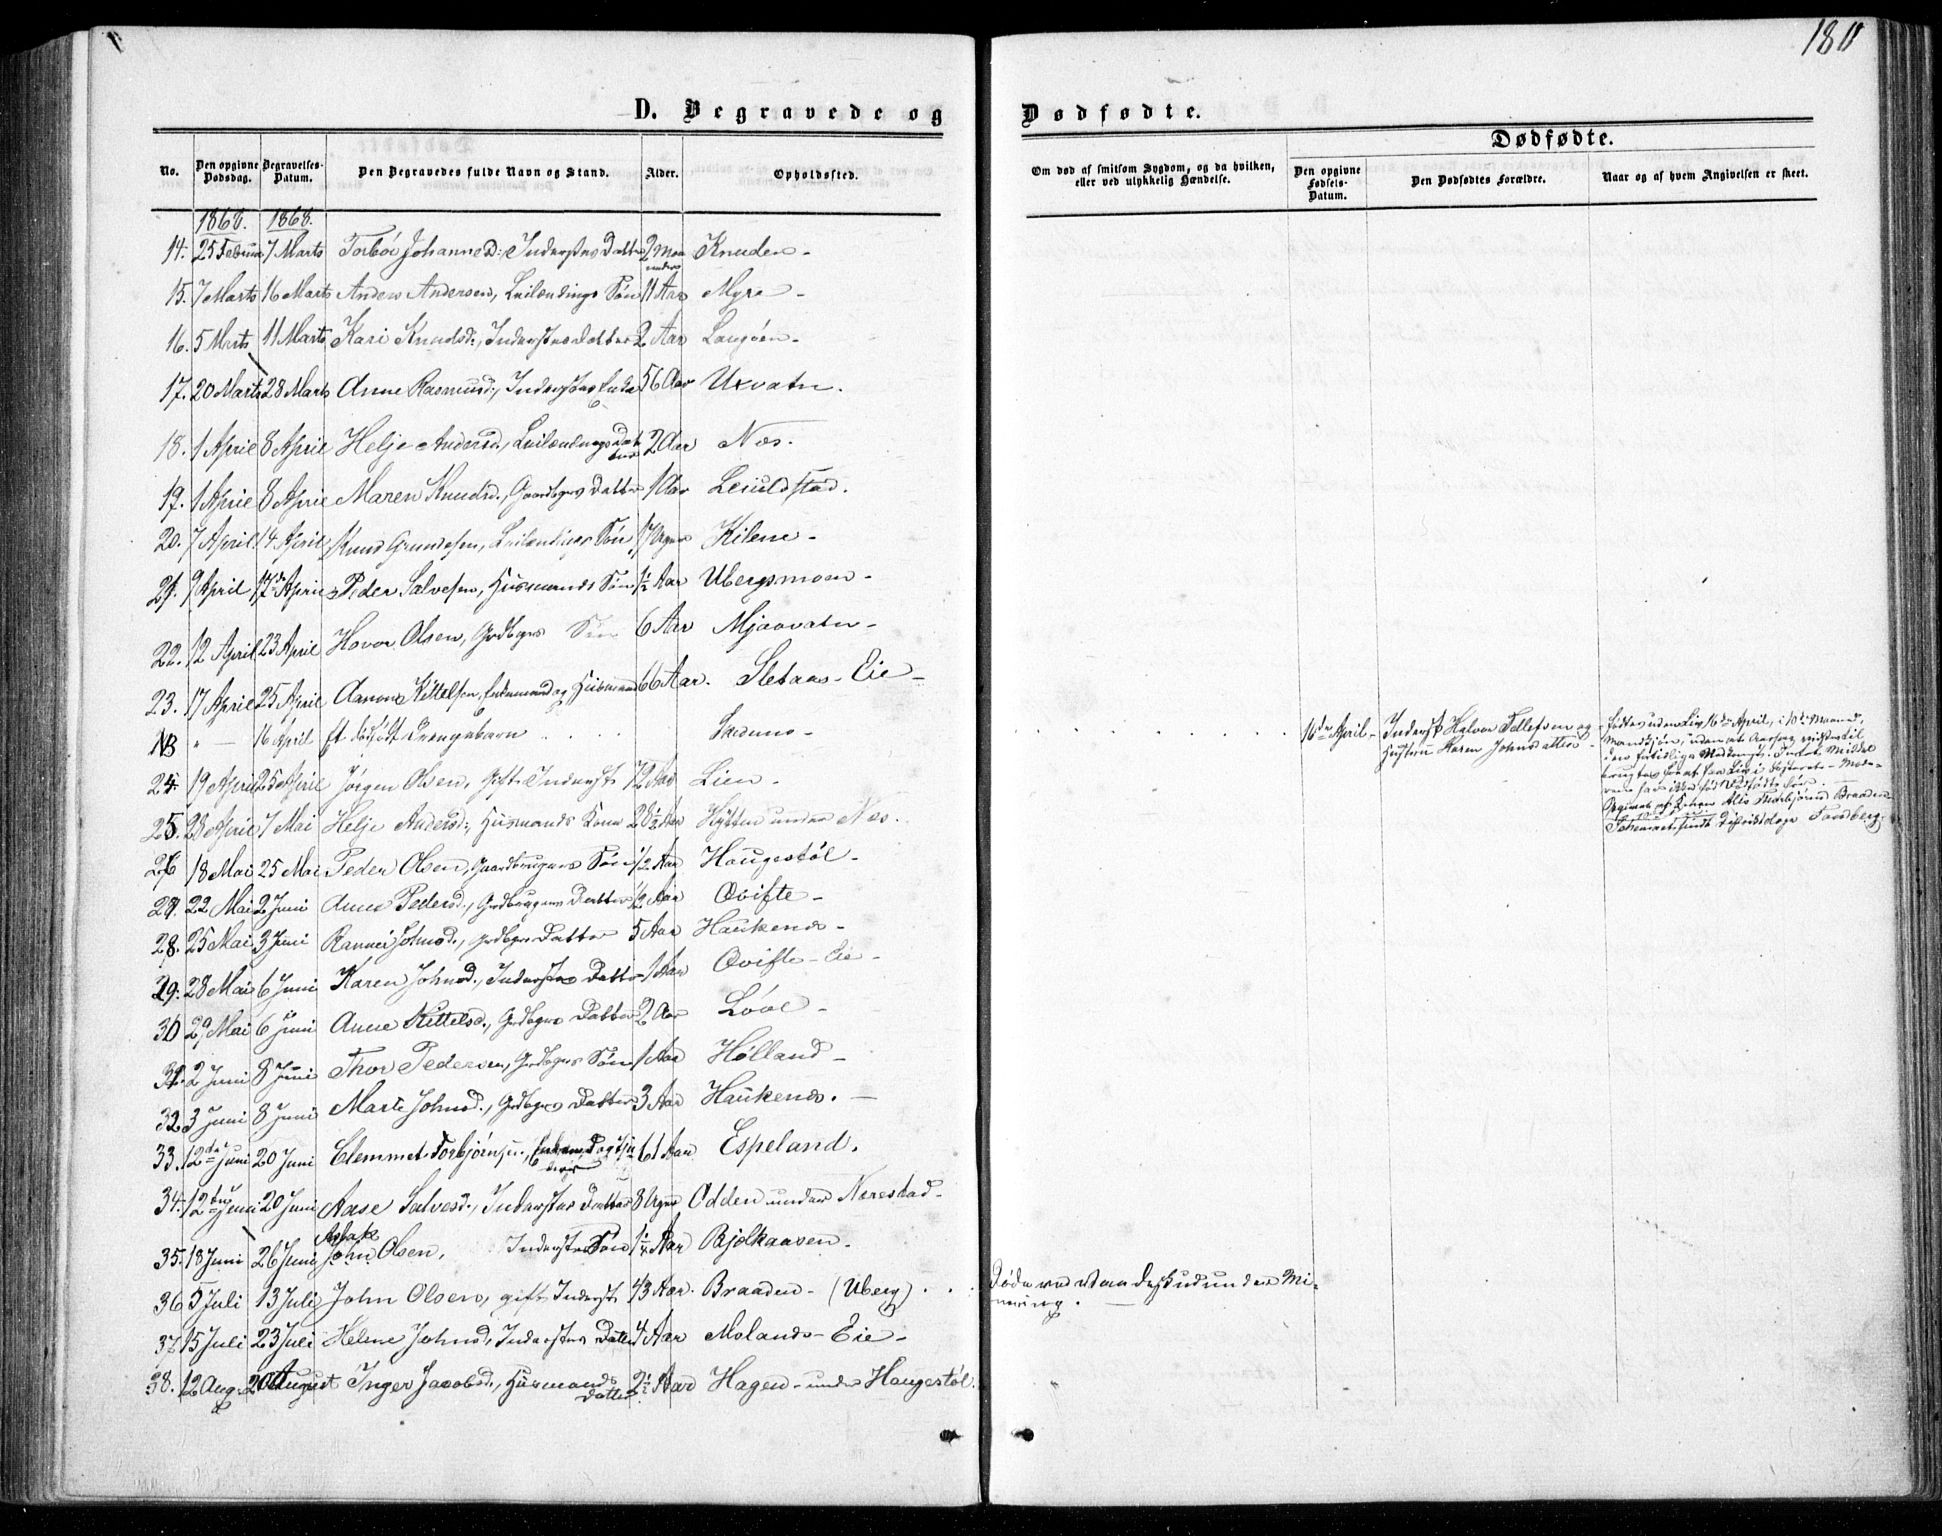 180
D. Begravede og Dødfødte.
Dødfødte.
No. Den opgivne Dødsdag. Begravelses-Datum. Den Begravedes fulde Navn og Stand. Alder. Opholdssted. Om død af smitsom Sygdom, og da hvilken, eller ved ulykkelig Hændelse. Den opgivne Fødsels-Datum. Den Dødfødtes Forældre. Naar og af hvem Angivelsen er skeet.
1868. 1868.
14. 25 Februar 7 Marts Torbør Johannesd: Inderstes Datter 2 Maaneder Knuden -
15. 7 Marts 16 Marts Anders Andersen, Leilændings Søn 11 Aar Myre -
16. 5 Marts 11 Marts Kari Knudsd:, Inderstes Datter 2 Aar Langøen -
17. 20 Marts 28 Marts Anne Rasmusd:, Inderstes Enke 56 Aar Uxvatn.
18. 1 April 8 April Helje Andersd., Leilændings Datter 2 Aar Næs.
19. 1 April 8 April Maren Knudsd., Gaardbgers Datter 1 Aar Leuldstad.
20. 7 April 14 April Knud Grundesen, Leilændings Søn 17 Uger Kilene -
21. 9 April 17de April Peder Salvesen, Husmands Søn 1/2 Aar Ubergsmoen -
22. 12 April 23 April Hovor Olsen, Grdbgers Søn 6 Aar Mjaavatn -
23. 17 April 25 April Aanon Kittelsen, Enkemand og Husmand 66 Aar. Sletaas-Eie -
NB " - 16 April Et dødfødt Drengebarn . . . . 16de April - Inderst Halvor Tellefsen og Hustru Karen Johnsdatter -
Fødtes uden Liv 16de April, i 10de Maaned,
24. 19 April 25 April Jørgen Olsen, Gift Inderst 72 Aar Lien -
25. 28 April 7 Mai Helje Andersd:, Husmands Kone 28 1/2 Aar Hytten under Næs.
26 18 Mai 25 Mai Peder Olsen, Gaardbrugers Søn 1/2 Aar Haugestøl -
27. 22 Mai 2 Juni Anne Pedersd., Grdbrugers Datter 1/2 Aar Qvifte -
28. 25 Mai 3 Juni Rannei Johnsd., Grdbgers Datter 5 Aar Haukenæs -
29. 28 Mai 6 Juni Karen Johnsd., Inderstes Datter 1 Aar Qvifte-Eie -
30 29 Mai 6 Juni Anne Kittelsd., Grdbgers Datter 2 Aar Løvl -
31. 2 Juni 8 Juni Thor Pedersen, Grdbgers Søn 1 Aar Hølland -
32. 3 Juni 8 Juni Marte Johnsd., Grdbgers Datter 3 Aar Haukenæs. -
33. 12de Juni 20 Juni Clemmet Torbjørnsen, 61 Aar Espeland.
34. 12te Juni 20 Juni Aase Salvesd., Inderstes Datter 8 Uger Odden under Nærestad -
Aslak
35. 18 Juni 26 Juni John Olsen, Inderstes Søn 1 1/4 Aar Bjelkaasen -
36 5 Juli 13 Juli John Olsen, gift Inderst 43 Aar. Braaden - (Uberg) . . . Døde ved Vaadeskud under Minering.
37 15 Juli 23 Juli Helene Johnsd., Inderstes Datter 4 Aar Molands-Eie -
38. 12 Aug. 20 August Inger Jacobsd., Husmands Datter 2 1/2 Aar Hagen - under Haugestøl.